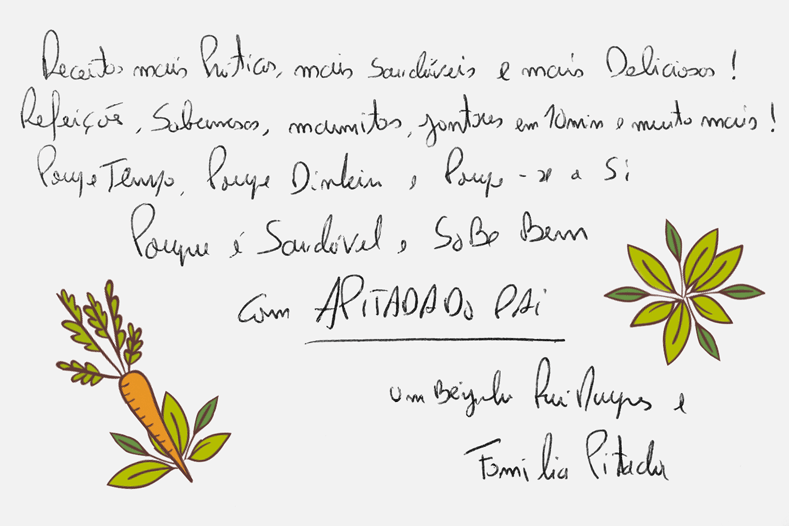 Receitas mais Práticas, mais saudáveis e mais Deliciosas!
Refeições, Sobremesas, marmitas, jantares em 10min e muito mais!
Poupe Tempo, Poupe Dinheiro e Poupe-se a Si
Porque é Saudável e SaBe Bem
com APITADADO PAi
um Beijinho Rui Marques e
Familia Pitada